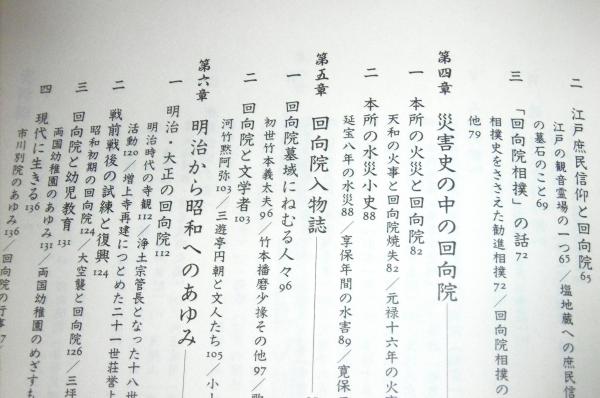 二 江戸庶民信仰と回向院65
江戸の観音霊場の一つ65／塩地蔵への庶民信
の墓石のこと69
三 「回向院相撲」の話72
相撲史をささえた勧進相撲72／回向院相撲の
他79
第四章 災害史の中の回向院
一 本所の火災と回向院82
天和の火事と回向院焼失82／元禄十六年の火
二 本所の水災小史88
延宝八年の水災88／享保年間の水害89／寛保
第五章 回向院人物誌
一 回向院墓域にねむる人々96
初世竹本義太夫96／竹本播磨少掾その他97／
二 回向院と文学者103
河竹黙阿弥103／三遊亭円朝と文人たち105／小
第六章 明治から昭和へのあゆみ
一 明治・大正の回向院112
明治時代の寺観112／浄土宗管長となった十八世
活動120／増上寺再建につとめた二十一世荘誉上
二 戦前戦後の試練と復興124
昭和初期の回向院124／大空襲と回向院126／三坪
三 回向院と幼児教育131
両国幼稚園のあゆみ131／両国幼稚園のめざすも
四 現代に生きる136
市川別院のあゆみ136／回向院の行事